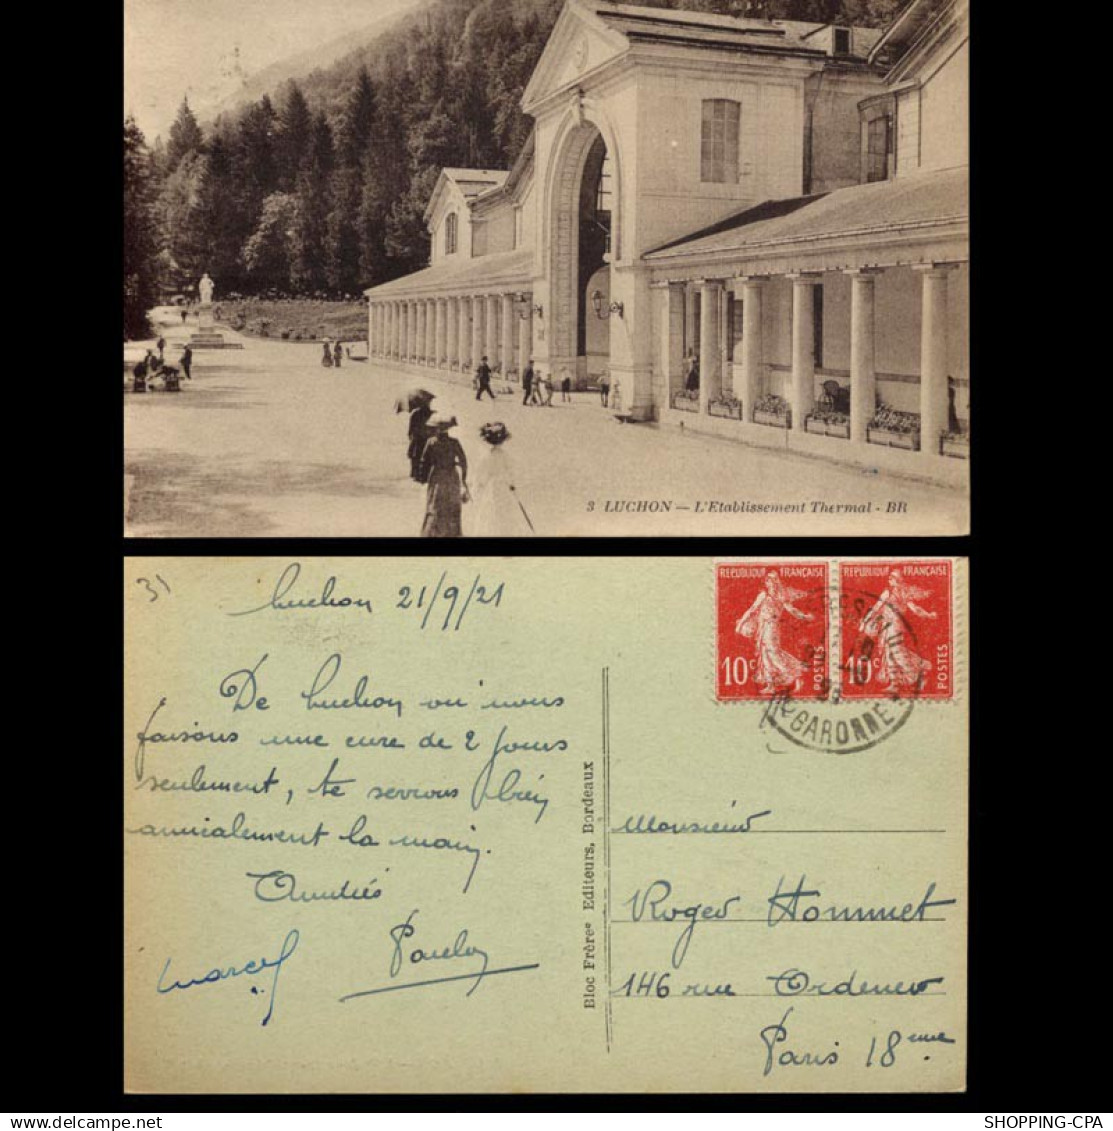 3 LUCHON — L'Etablissement Thermal - BR
31
Luchon 21/9/21
REPUBLIQUE FRANÇAISE
10c
POSTES
REPUBLIQUE FRANÇAISE
10c
POSTES
GARONNE
De Luchon où nous
faisons une cure de 2 jours
seulement, te serrons bien
amicalement la main.
Amitiés
Marcel
Bloc Frères Editeurs, Bordeaux
Monsieur
Roger Hommet
146 rue Ordener
Paris 18eme
SHOPPING-CPA